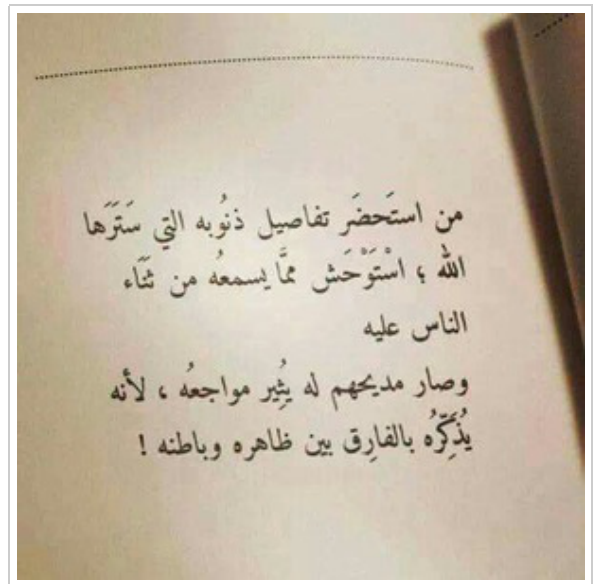 من استَحضَر تفاصيل ذنُوبه التي سَتَرَها
الله ؛ اسْتَوْحَش ممَّا يسمعُه من ثَنَاء
الناس عليه
وصار مديحهم له يُثِير مواجعُه ، لأنه
يُذَكِّرُه بالفارِق بين ظاهره وباطنه !